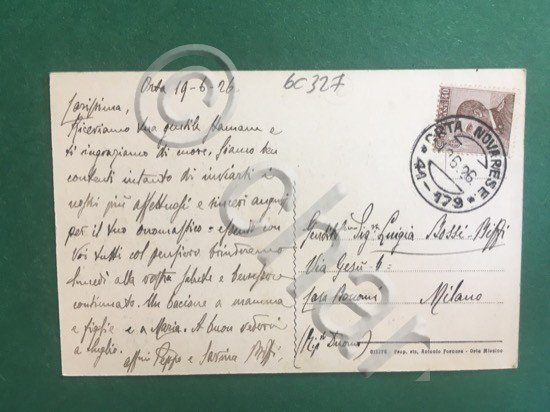 Orta 19-6-26
6C327
Carissima,
Riceviamo tua gentile stamane e
ti ringraziamo di cuore. Siamo ben
contenti intanto di inviarti i
nostri più affettuosi e sinceri auguri
per il tuo onomastico e
Voi tutti col pensiero brinderemo
lunedì alla vostra salute e benessere
continuato. Un bacione a mamma
e figlie e a Maria. A buon vederci
a luglio.
affmi Peppo e Savina Biffi.
ORTA NOVARESE
6.26
* 41-179 *
Sig.ra Luigia Bossi-Biffi
Via Gesù 6
Casa Bonomi Milano
(Rip.to Duomo)
Prop. ris. Antonio Fornara - Orta Novarese